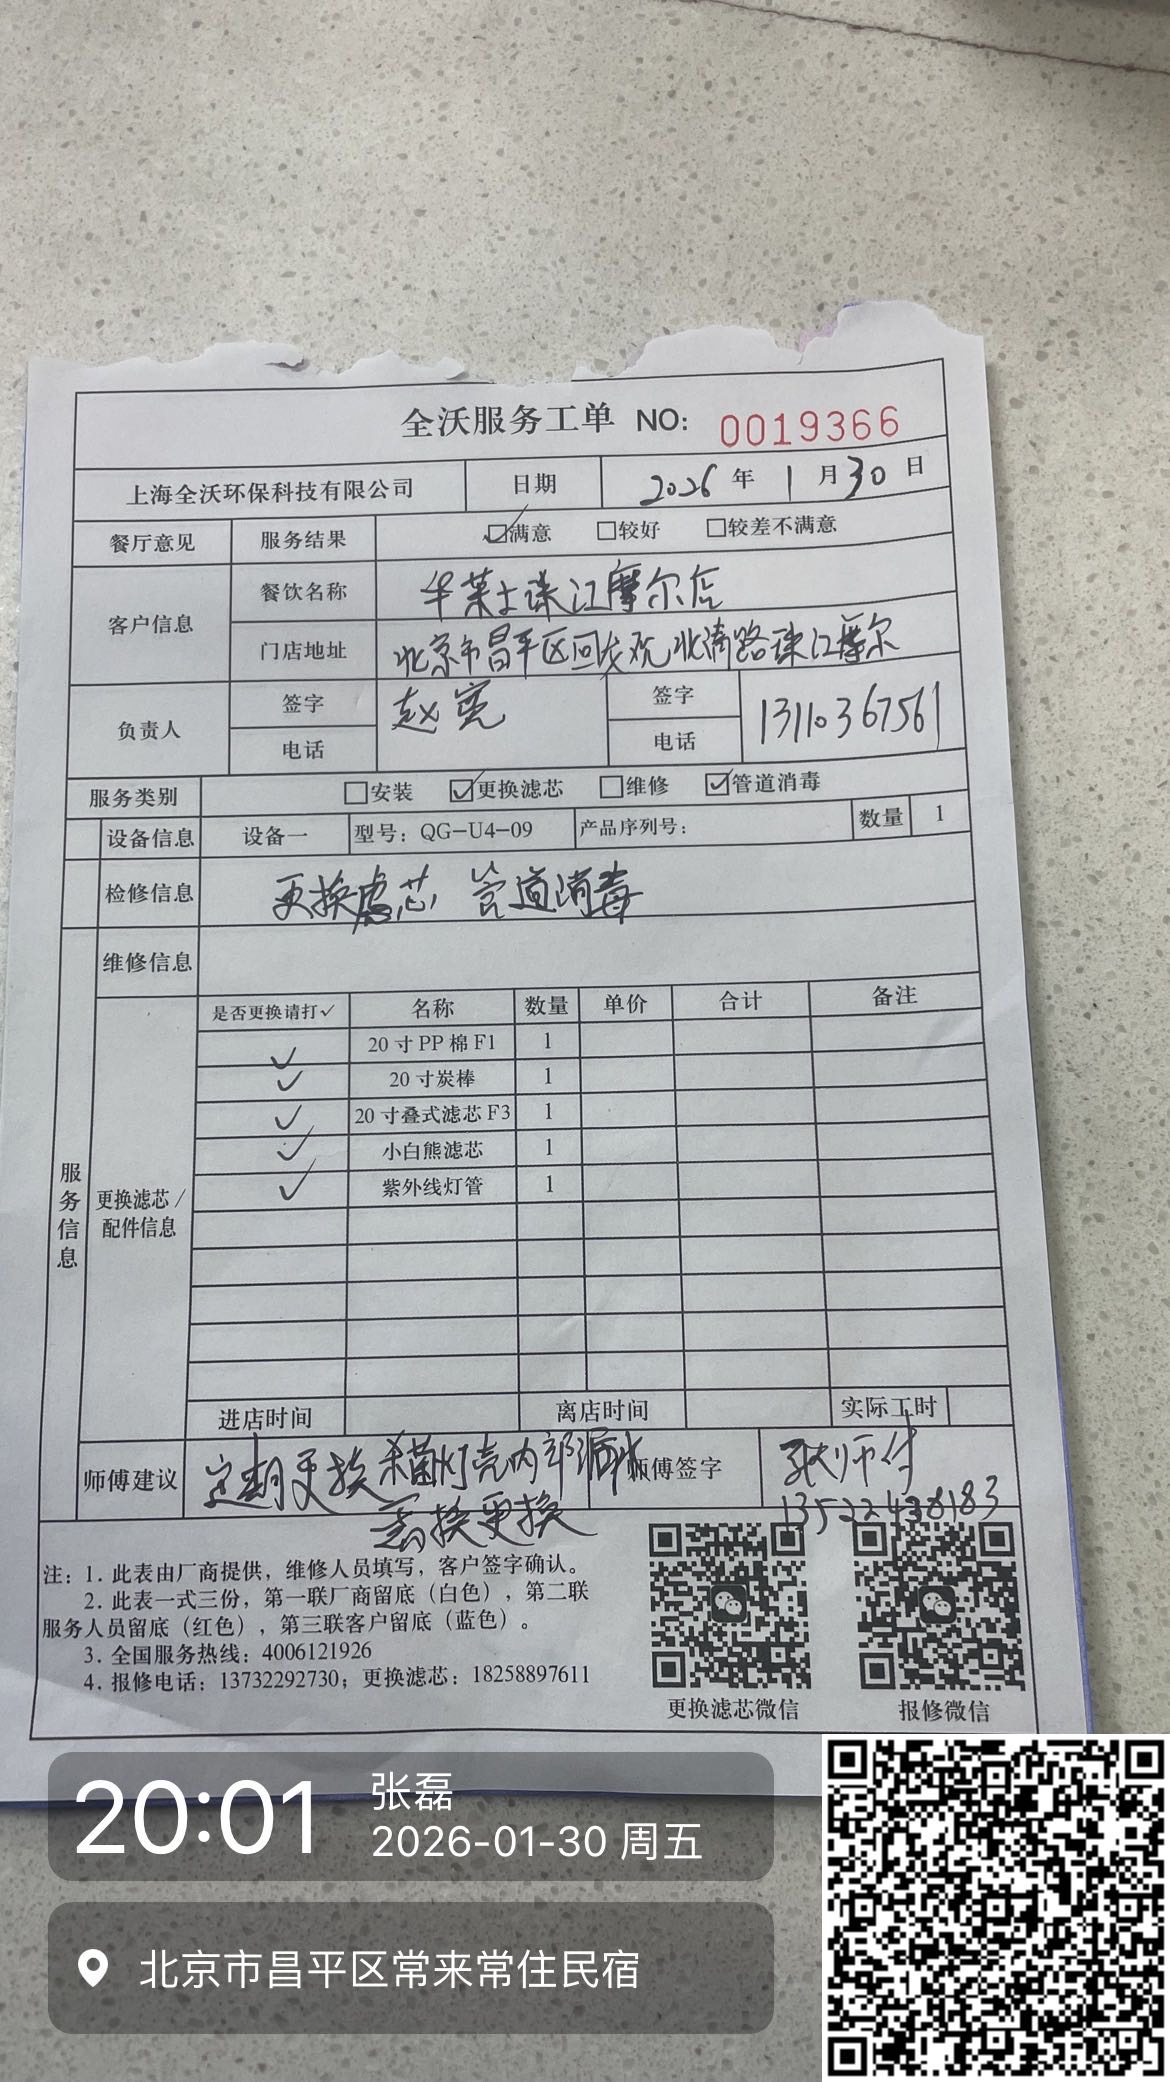 全沃服务工单 NO: 0019366
上海全沃环保科技有限公司 日期 2026 年 1 月 30 日
餐厅意见 服务结果 ☑满意 □较好 □较差不满意
客户信息 餐饮名称 华莱士珠江摩尔店
门店地址 北京市昌平区回龙观北清路珠江摩尔
负责人 签字 赵宽 签字
电话 电话 13110367561
服务类别 □安装 ☑更换滤芯 □维修 ☑管道消毒
设备信息 设备一 型号：QG-U4-09 产品序列号： 数量 1
检修信息 更换滤芯 管道消毒
维修信息
服务信息
更换滤芯/配件信息
是否更换请打✓ 名称 数量 单价 合计 备注
✓ 20寸PP棉F1 1
✓ 20寸炭棒 1
✓ 20寸叠式滤芯F3 1
✓ 小白熊滤芯 1
✓ 紫外线灯管 1
进店时间 离店时间 实际工时
师傅建议 定期更换 杀菌灯壳内部漏水 师傅签字 张师付
需换更换 13522438183
注：1. 此表由厂商提供，维修人员填写，客户签字确认。
2. 此表一式三份，第一联厂商留底（白色），第二联
服务人员留底（红色），第三联客户留底（蓝色）。
3. 全国服务热线：4006121926
4. 报修电话：13732292730；更换滤芯：18258897611
更换滤芯微信 报修微信
20:01 张磊
2026-01-30 周五
北京市昌平区常来常住民宿